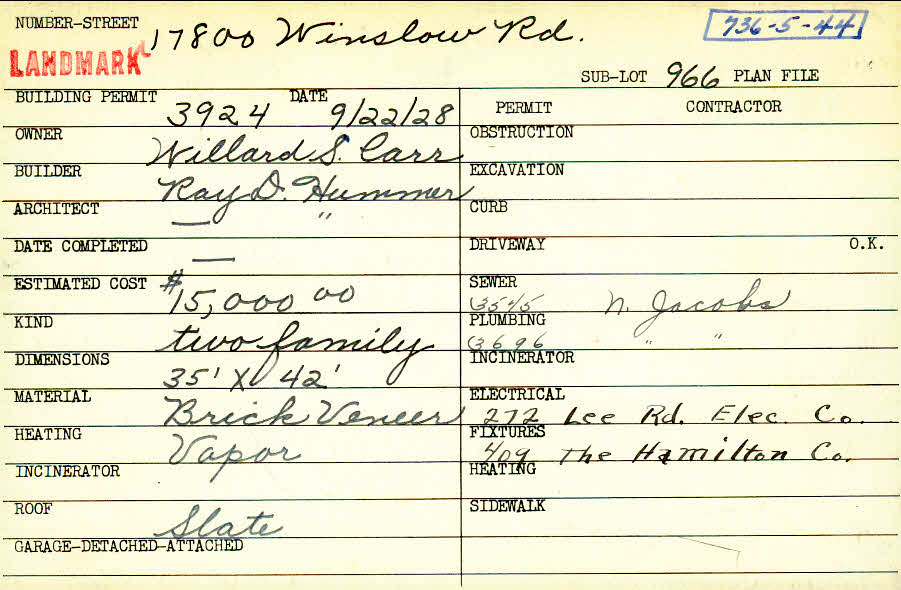 NUMBER-STREET 17800 Winslow Rd. 736-5-44
LANDMARK
SUB-LOT 966 PLAN FILE
BUILDING PERMIT 3924 DATE 9/22/28
PERMIT CONTRACTOR
OWNER Willard S. Carr
OBSTRUCTION
BUILDER Ray D. Hummer
EXCAVATION
ARCHITECT — "
CURB
DATE COMPLETED —
DRIVEWAY O.K.
ESTIMATED COST $15,000 00
SEWER 3545 N. Jacobs
KIND two family
PLUMBING 3696 " "
DIMENSIONS 35' X 42'
INCINERATOR
MATERIAL Brick Veneer
ELECTRICAL 272 Lee Rd. Elec. Co.
HEATING Vapor
FIXTURES 409 The Hamilton Co.
INCINERATOR
HEATING
ROOF Slate
SIDEWALK
GARAGE-DETACHED-ATTACHED